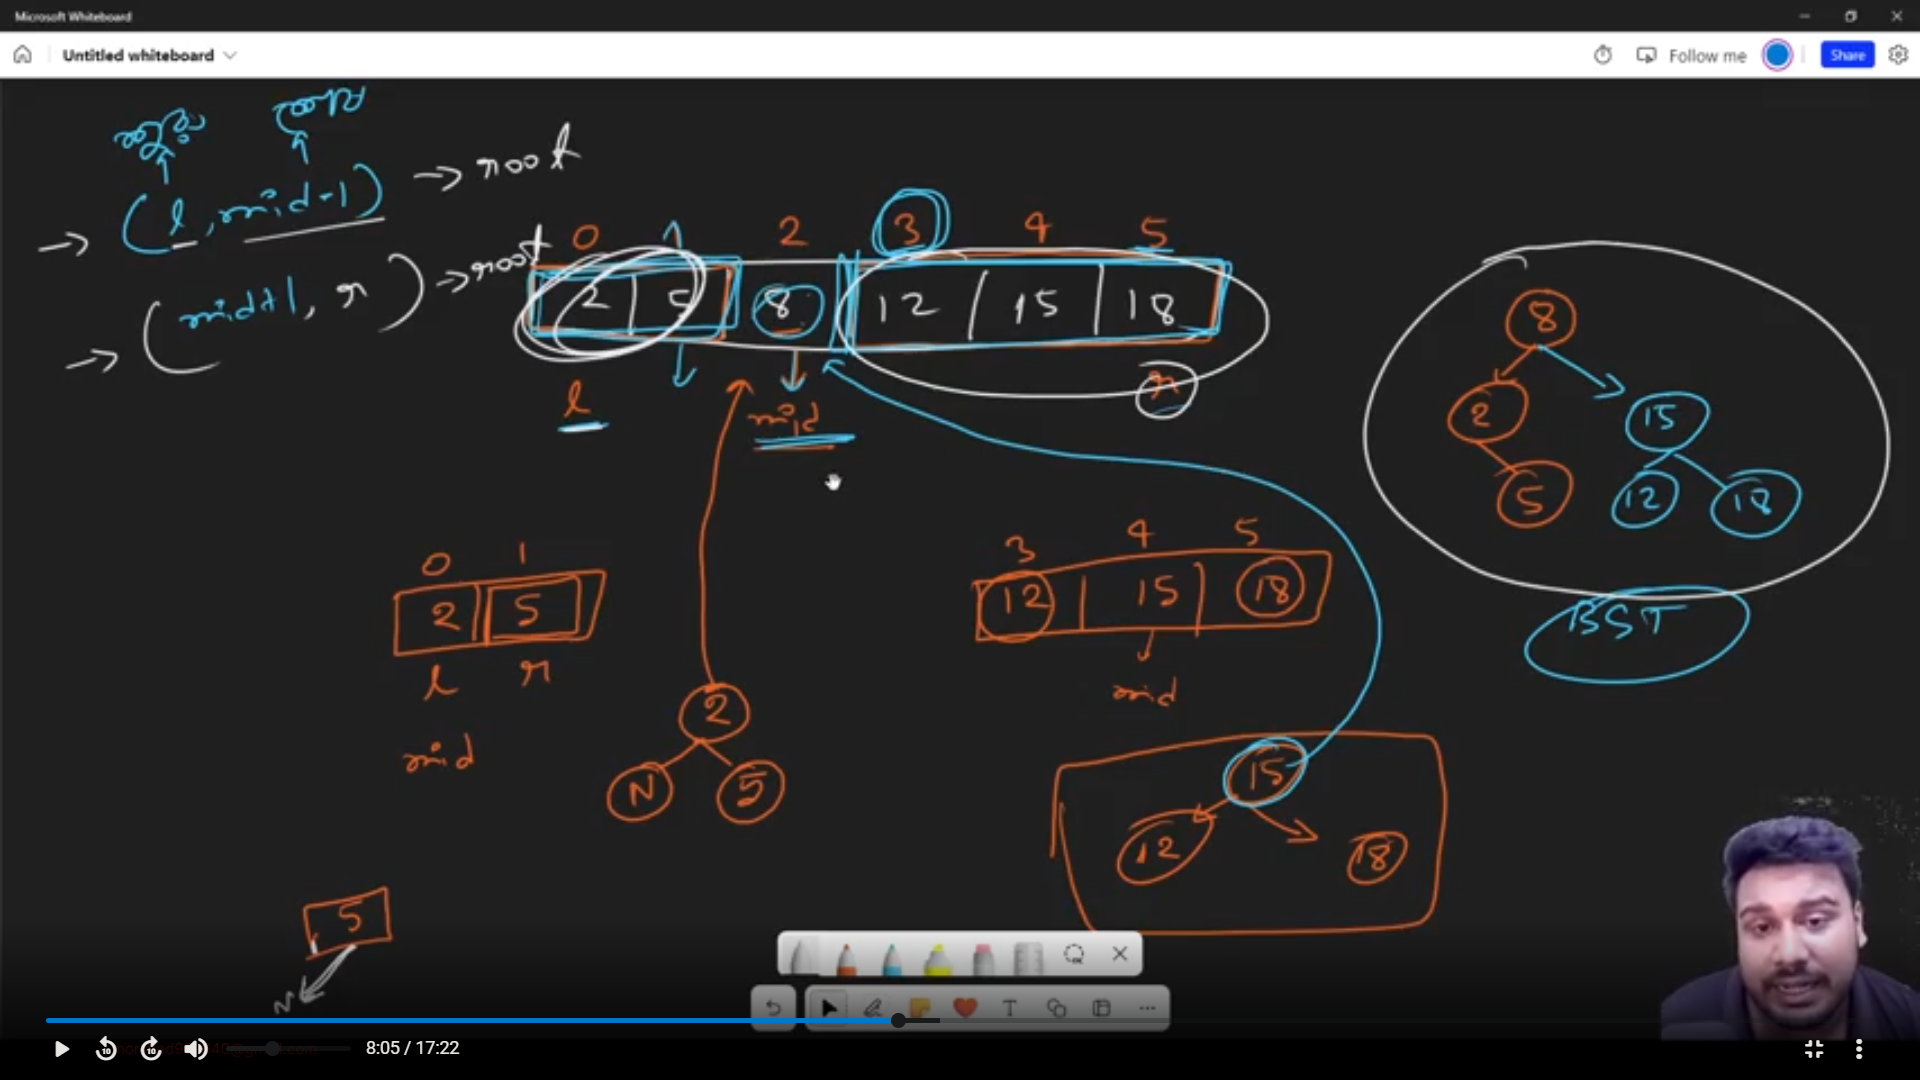 Microsoft Whiteboard
Untitled whiteboard
Follow me
Share
(l, mid-1) → root
(mid+1, r) → root
0 1 2 3 4 5
2 5 8 12 15 18
l mid r
8
2 15
5 12 18
BST
0 1
2 5
l r
mid
2
N 5
3 4 5
12 15 18
mid
15
12 18
5
N
8:05 / 17:22